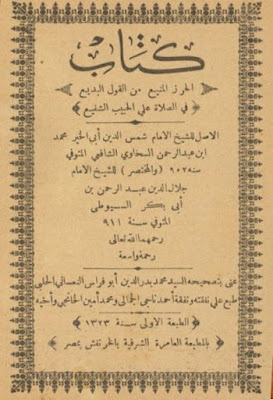 كتاب
الحرز المنيع من القول البديع
في الصلاة على الحبيب الشفيع
الاصل للشيخ الامام شمس الدين أبى الخير محمد
ابن عبدالرحمن السخاوى الشافعى المتوفى
سنة ٩٠٢ (والمختصر) للشيخ الامام
جلال الدين عبد الرحمن بن
أبى بكر السيوطى
المتوفى سنة ٩١١
رحمهما الله تعالى
رحمة واسعة
عنى بتصحيحه السيد محمد بدر الدين أبو فراس النعسانى الحلبى
طبع على نفقته ونفقة أحمد ناجى الجمالى ومحمد أمين الخانجى وأخيه
الطبعة الاولى سنة ١٣٢٣
بالمطبعة العامرة الشرفية بالخرنفش بمصر